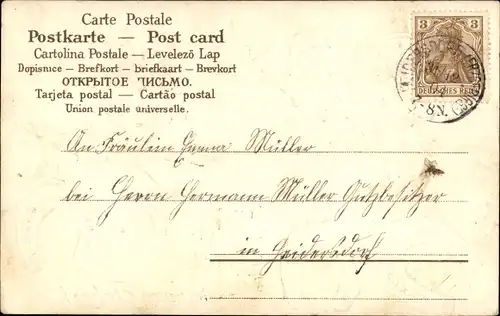 Carte Postale
Postkarte — Post card
Cartolina Postale — Levelező Lap
Dopisnice — Brefkort — briefkaart — Brevkort
ОТКРЫТОЕ ПИСЬМО.
Tarjeta postal — Cartão postal
Union postale universelle.
3 3
DEUTSCHES REICH
7-8N.
An Fräulein Emma Müller
bei Herrn Hermann Müller Gutsbesitzer
in Heidersdorf